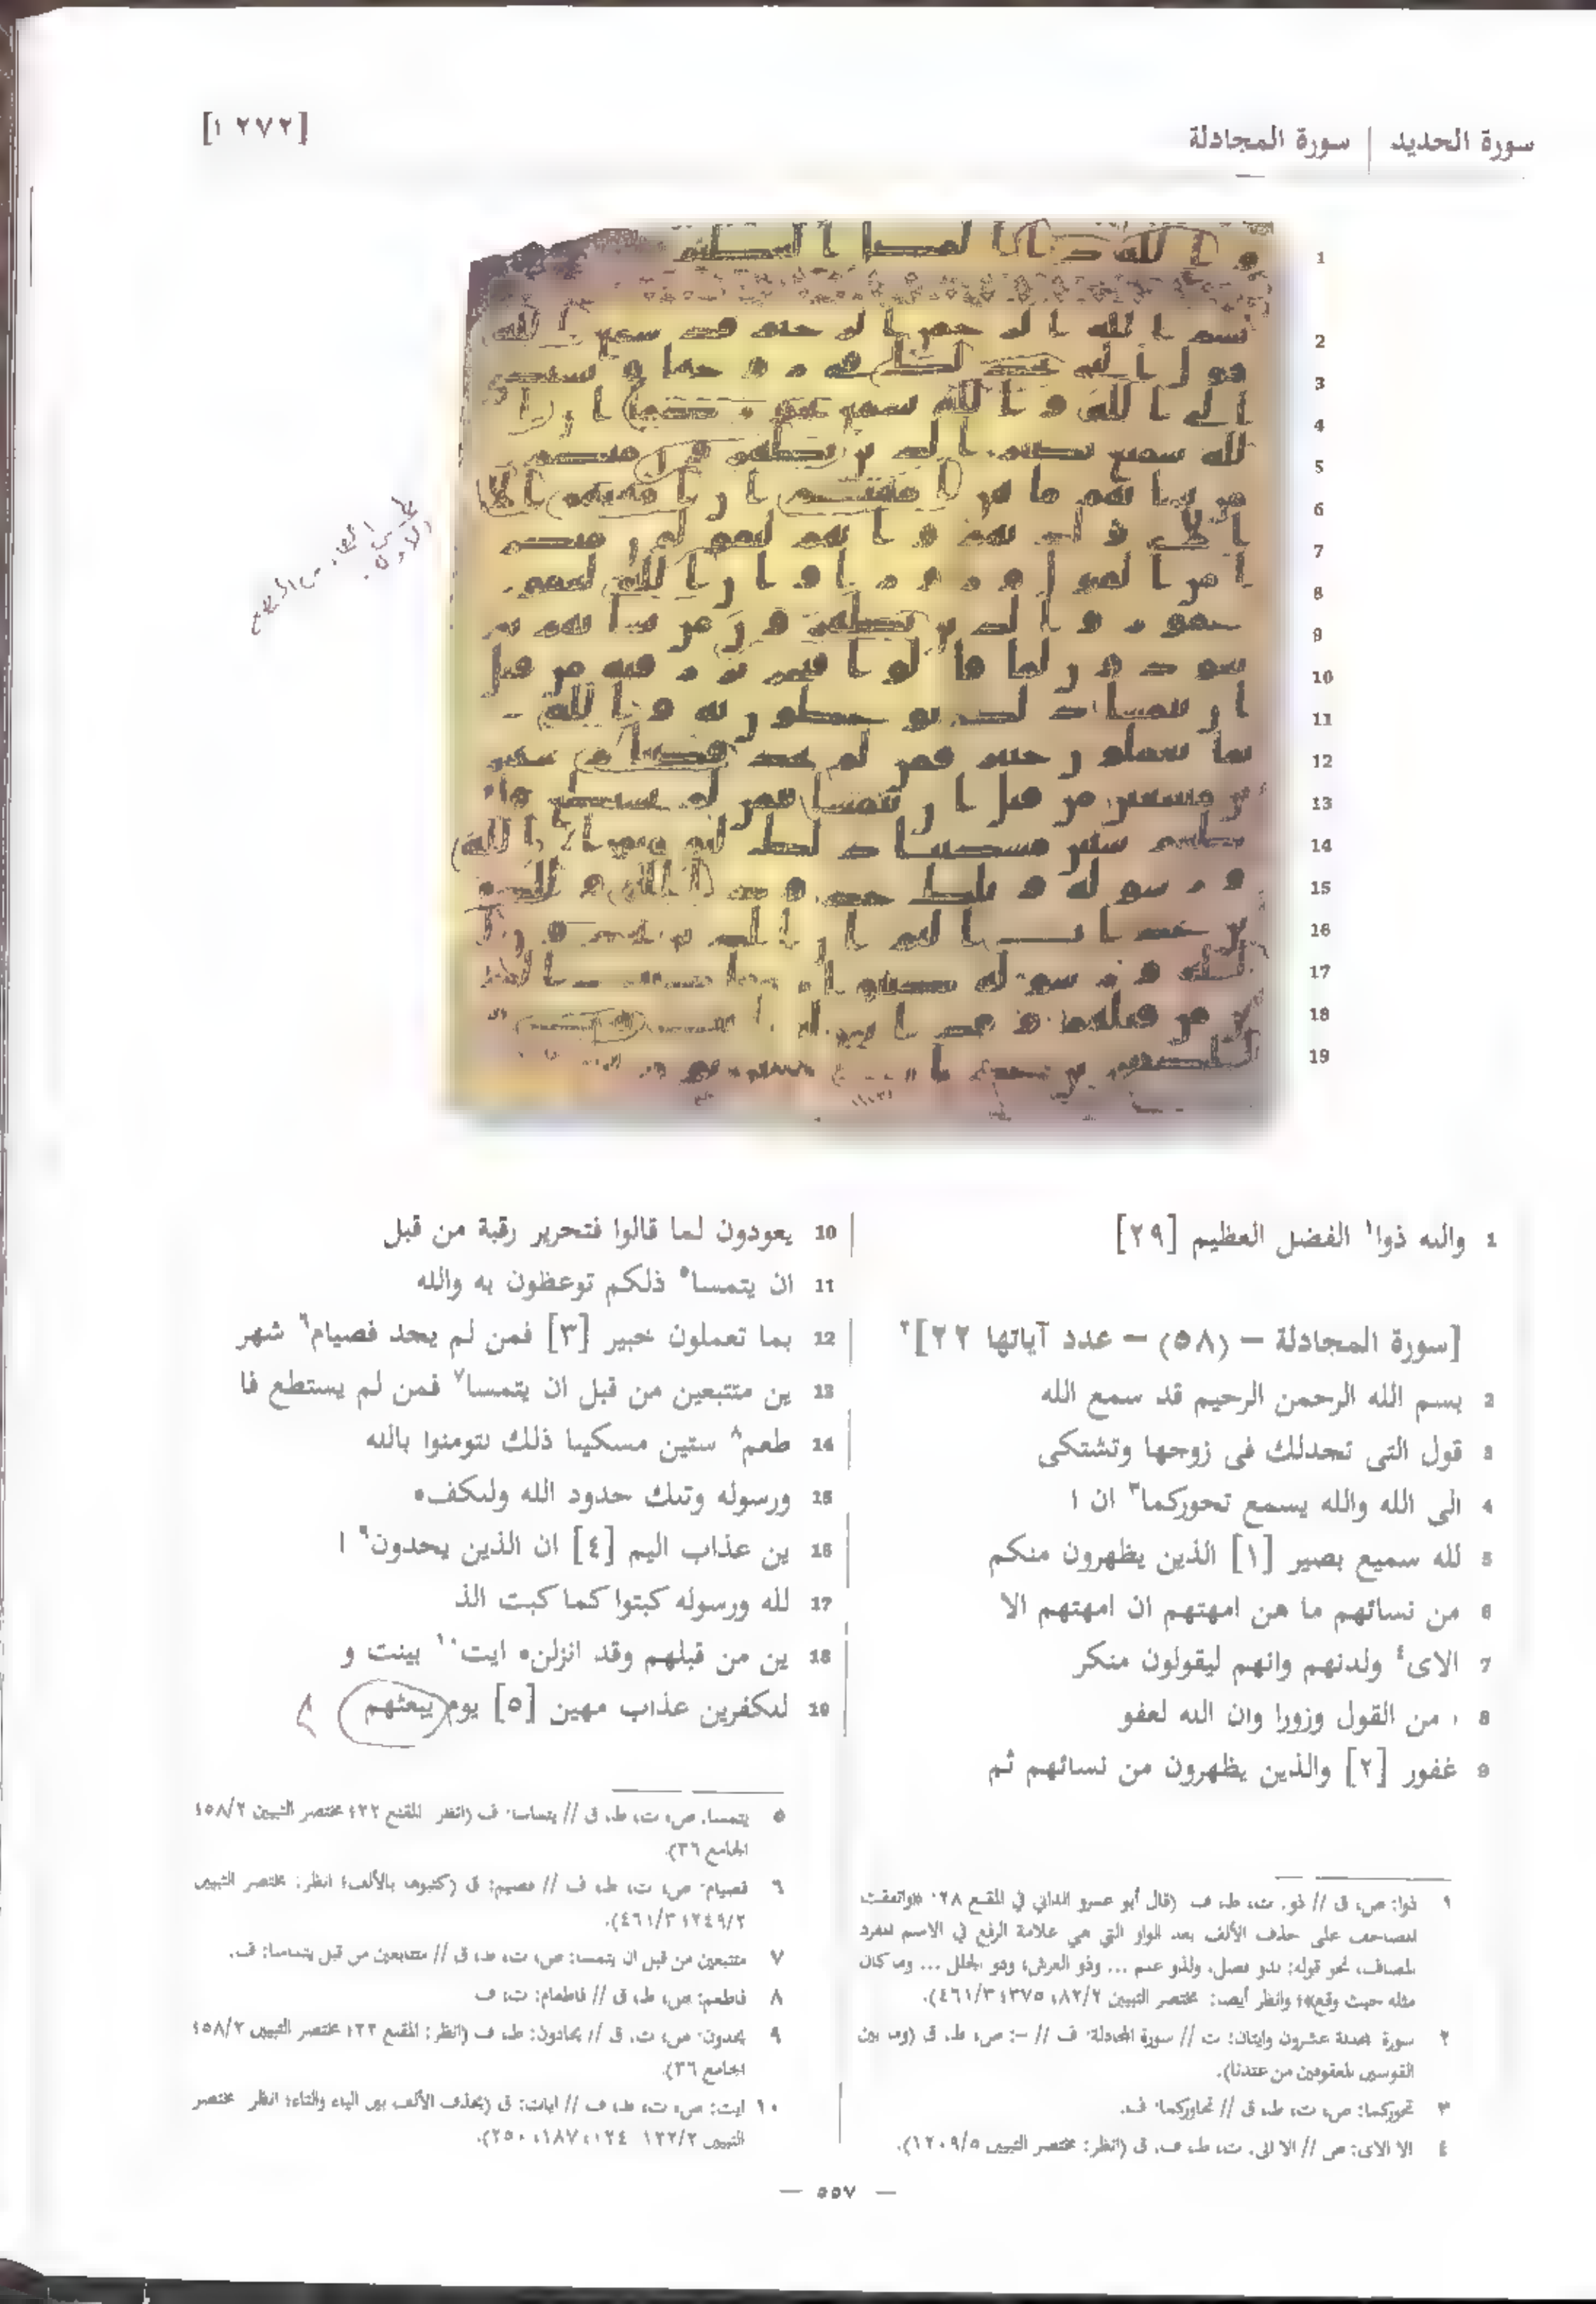 سورة الحديد | سورة المجادلة
[٢٧٢ ١]
1
2
3
4
5
6
7
8
9
10
11
12
13
14
15
16
17
18
19
1 والله ذوا١ الفضل العظيم [٢٩]
[سورة المجادلة – (٥٨) – عدد آياتها ٢٢]٢
2 بسم الله الرحمن الرحيم قد سمع الله
3 قول التى تجدلك فى زوجها وتشتكى
4 الى الله والله يسمع تحوركما٣ ان ا
5 لله سميع بصير [١] الذين يظهرون منكم
6 من نسائهم ما هن امهتهم ان امهتهم الا
7 الاى٤ ولدنهم وانهم ليقولون منكر
8 ا من القول وزورا وان الله لعفو
9 غفور [٢] والذين يظهرون من نسائهم ثم
10 يعودون لما قالوا فتحرير رقبة من قبل
11 ان يتمسا٥ ذلكم توعظون به والله
12 بما تعملون خبير [٣] فمن لم يجد فصيام٦ شهر
13 ين متتبعين من قبل ان يتمسا٧ فمن لم يستطع فا
14 طعم٨ ستين مسكينا ذلك لتومنوا بالله
15 ورسوله وتلك حدود الله وللكفـ
16 ين عذاب اليم [٤] ان الذين يحدون٩ ا
17 لله ورسوله كبتوا كما كبت الذ
18 ين من قبلهم وقد انزلنا ايت١٠ بينت و
19 للكفرين عذاب مهين [٥] يوم يبعثهم
١ ذوا: ص، ق // ذو: ت، ط، ف (قال أبو عمرو الداني في المقنع ٢٨: «واتفقت
المصاحف على حذف الألف بعد الواو التي هي علامة الرفع في الاسم المفرد
المضاف، نحو قوله: لذو فضل، ولذو علم ... وذو العرش، وذو الجلل ... وما كان
مثله حيث وقع»؛ وانظر أيضا: مختصر التبيين ٨٢/٢، ٣٧٥؛ ٤٦١/٣).
٢ سورة المجدلة عشرون وايتان: ت // سورة المجادلة: ف // –: ص، ط، ق (وما بين
القوسين المعقوفين من عندنا).
٣ تحوركما: ص، ت، ط، ق // تحاوركما: ف.
٤ الا الاى: ص // الا الى: ت، ط، ف، ق (انظر: مختصر التبيين ١٢٠٩/٥).
٥ يتمسا: ص، ت، ط، ق // يتماسا: ف (انظر: المقنع ٢٢؛ مختصر التبيين ٤٥٨/٢؛
الجامع ٣٦).
٦ فصيام: ص، ت، ط، ف // فصيم: ق (كتبوها بالألف؛ انظر: مختصر التبيين
٢٤٩/٢؛ ٤٦١/٣).
٧ متتبعين من قبل ان يتمسا: ص، ت، ط، ق // متتابعين من قبل يتماسا: ف.
٨ فاطعم: ص، ط، ق // فاطعام: ت، ف
٩ يحدون: ص، ت، ق // يحادون: ط، ف (انظر: المقنع ٢٢؛ مختصر التبيين ٤٥٨/٢؛
الجامع ٣٦).
١٠ ايت: ص، ت، ط، ف // ايات: ق (بحذف الألف بين الياء والتاء؛ انظر: مختصر
التبيين ١٢٢/٢، ١٢٤، ١٨٧، ٢٥٠).
— ٥٥٧ —